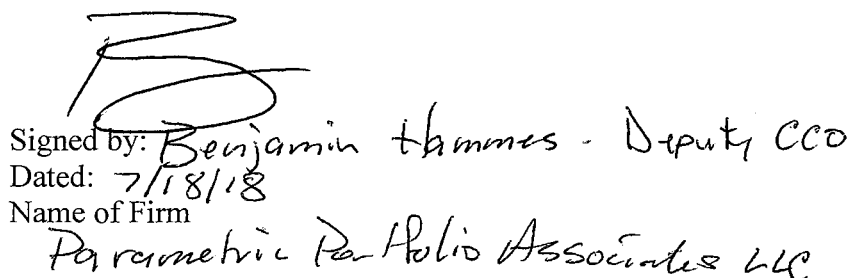 Signed by: Benjamin Hammes - Deputy CCO
Dated: 7/18/18
Name of Firm
Parametric Portfolio Associates LLC